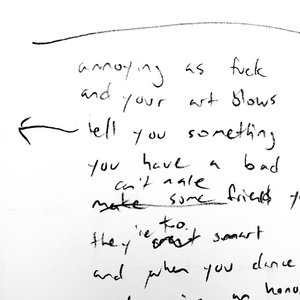 annoying as fuck
and your art blows
tell you something
you have a bad
can't make
make some friend y
they're too smart
and when you dance
an honor